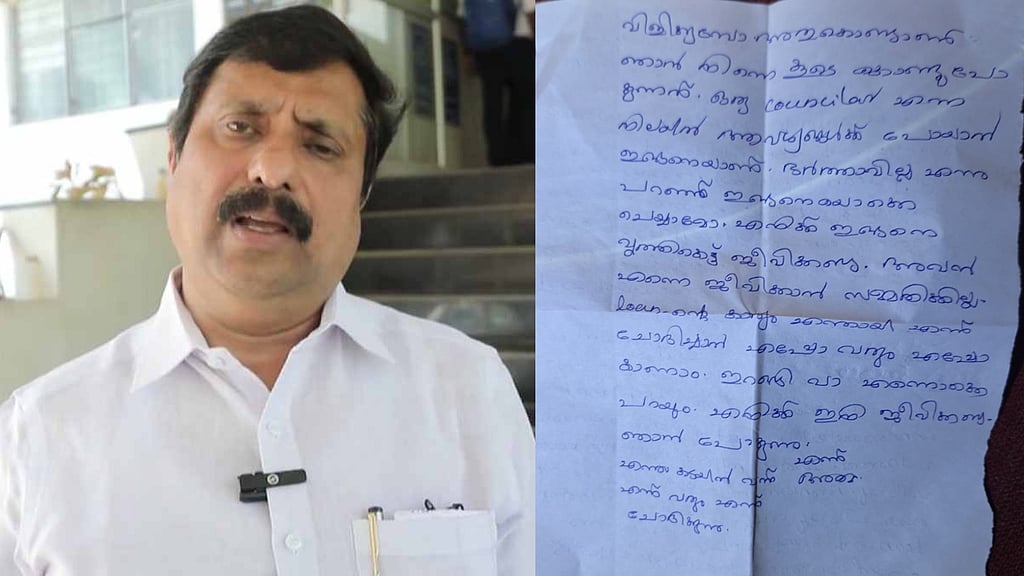 വിളിക്കുമ്പോ അതുകൊണ്ടാണ്
ഞാൻ നിന്നെ കൂടെ കൊണ്ടുപോ
കുന്നത്. ഒരു councilar എന്ന
നിലയിൽ ആവശ്യങ്ങൾക്ക് പോയാൽ
ഇങ്ങനെയാണ്. ഭർത്താവില്ല എന്നു
പറഞ്ഞ് ഇങ്ങനെയൊക്കെ
ചെയ്യാമോ. എനിക്ക് ഇങ്ങനെ
വൃത്തികെട്ട് ജീവിക്കണ്ട. അവൻ
എന്നെ ജീവിക്കാൻ സമ്മതിക്കില്ല.
loan-ന്റെ കാര്യം എന്തായി എന്ന്
ചോദിച്ചാൽ എപ്പോ വരും എപ്പോ
കാണാം. ഇറങ്ങി വാ എന്നൊക്കെ
പറയും. എനിക്ക് ഇനി ജീവിക്കണ്ട.
ഞാൻ പോകുന്നു.
എന്റെ കടയിൽ വന്ന്
എന്ന് വരും എന്ന്
ചോദിക്കുന്നു.